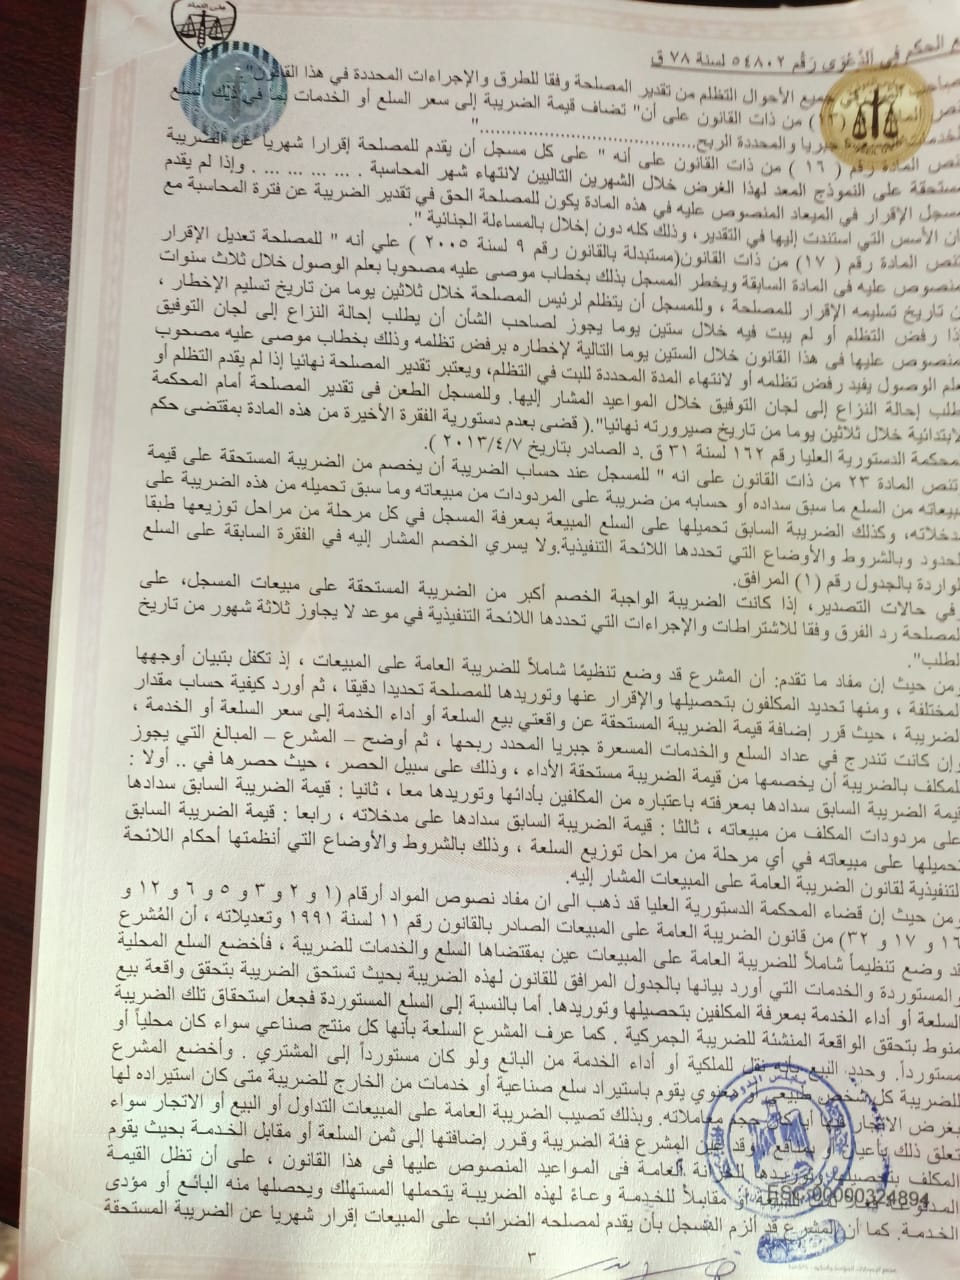 مجلس الدولة
ع الحكم في الدعوى رقم ٥٤٨٠٢ لسنة ٧٨ ق
جميع الأحوال التظلم من تقدير المصلحة وفقا للطرق والإجراءات المحددة في هذا القانون".
من ذات القانون على أن" تضاف قيمة الضريبة إلى سعر السلع أو الخدمات بما في ذلك السلع
جبريا والمحددة الربح..............................."
نص المادة رقم ( ١٦ ) من ذات القانون على أنه " على كل مسجل أن يقدم للمصلحة إقرارا شهريا عن الضريبة
مستحقة على النموذج المعد لهذا الغرض خلال الشهرين التاليين لانتهاء شهر المحاسبة . ... ... ... ... . وإذا لم يقدم
مسجل الإقرار في الميعاد المنصوص عليه في هذه المادة يكون للمصلحة الحق في تقدير الضريبة عن فترة المحاسبة مع
ان الأسس التي استندت إليها في التقدير ، وذلك كله دون إخلال بالمساءلة الجنائية ".
تنص المادة رقم ( ١٧) من ذات القانون(مستبدلة بالقانون رقم ٩ لسنة ٢٠٠٥ ) علي أنه " للمصلحة تعديل الإقرار
منصوص عليه في المادة السابقة ويخطر المسجل بذلك بخطاب موصى عليه مصحوبا بعلم الوصول خلال ثلاث سنوات
ن تاريخ تسليمه الإقرار للمصلحة ، وللمسجل أن يتظلم لرئيس المصلحة خلال ثلاثين يوما من تاريخ تسليم الإخطار ،
إذا رفض التظلم أو لم يبت فيه خلال ستين يوما يجوز لصاحب الشأن أن يطلب إحالة النزاع إلى لجان التوفيق
منصوص عليها في هذا القانون خلال الستين يوما التالية لإخطاره برفض تظلمه وذلك بخطاب موصى عليه مصحوب
علم الوصول يفيد رفض تظلمه أو لانتهاء المدة المحددة للبت في التظلم، ويعتبر تقدير المصلحة نهائيا إذا لم يقدم التظلم أو
طلب إحالة النزاع إلى لجان التوفيق خلال المواعيد المشار إليها. وللمسجل الطعن فى تقدير المصلحة أمام المحكمة
لابتدائية خلال ثلاثين يوما من تاريخ صيرورته نهائيا".( قضى بعدم دستورية الفقرة الأخيرة من هذه المادة بمقتضى حكم
لمحكمة الدستورية العليا رقم ١٦٢ لسنة ٣١ ق .د الصادر بتاريخ ٢٠١٣/٤/٧ ).
تنص المادة ٢٣ من ذات القانون على انه " للمسجل عند حساب الضريبة أن يخصم من الضريبة المستحقة على قيمة
مبيعاته من السلع ما سبق سداده أو حسابه من ضريبة على المردودات من مبيعاته وما سبق تحميله من هذه الضريبة على
مدخلاته، وكذلك الضريبة السابق تحميلها على السلع المبيعة بمعرفة المسجل في كل مرحلة من مراحل توزيعها طبقا
لحدود وبالشروط والأوضاع التي تحددها اللائحة التنفيذية.ولا يسري الخصم المشار إليه في الفقرة السابقة على السلع
لواردة بالجدول رقم (١) المرافق.
وفي حالات التصدير، إذا كانت الضريبة الواجبة الخصم أكبر من الضريبة المستحقة على مبيعات المسجل، على
لمصلحة رد الفرق وفقا للاشتراطات والإجراءات التي تحددها اللائحة التنفيذية في موعد لا يجاوز ثلاثة شهور من تاريخ
لطلب".
ومن حيث إن مفاد ما تقدم: أن المشرع قد وضع تنظيمًا شاملاً للضريبة العامة على المبيعات ، إذ تكفل بتبيان أوجهها
المختلفة ، ومنها تحديد المكلفون بتحصيلها والإقرار عنها وتوريدها للمصلحة تحديدا دقيقا ، ثم أورد كيفية حساب مقدار
لضريبة ، حيث قرر إضافة قيمة الضريبة المستحقة عن واقعتي بيع السلعة أو أداء الخدمة إلى سعر السلعة أو الخدمة ،
وإن كانت تندرج في عداد السلع والخدمات المسعرة جبريا المحدد ربحها ، ثم أوضح – المشرع – المبالغ التي يجوز
للمكلف بالضريبة أن يخصمها من قيمة الضريبة مستحقة الأداء ، وذلك على سبيل الحصر ، حيث حصرها في .. أولا :
قيمة الضريبة السابق سدادها بمعرفته باعتباره من المكلفين بأدائها وتوريدها معا ، ثانيا : قيمة الضريبة السابق سدادها
على مردودات المكلف من مبيعاته ، ثالثا : قيمة الضريبة السابق سدادها على مدخلاته ، رابعا : قيمة الضريبة السابق
تحميلها على مبيعاته في أي مرحلة من مراحل توزيع السلعة ، وذلك بالشروط والأوضاع التي أنظمتها أحكام اللائحة
لتنفيذية لقانون الضريبة العامة على المبيعات المشار إليه.
ومن حيث إن قضاء المحكمة الدستورية العليا قد ذهب الى ان مفاد نصوص المواد أرقام (١ و ٢ و ٣ و ٥ و ٦ و ١٢ و
١٦ و ١٧ و ٣٢) من قانون الضريبة العامة على المبيعات الصادر بالقانون رقم ١١ لسنة ١٩٩١ وتعديلاته ، أن المُشرع
قد وضع تنظيماً شاملاً للضريبة العامة على المبيعات عين بمقتضاها السلع والخدمات للضريبة ، فأخضع السلع المحلية
والمستوردة والخدمات التي أورد بيانها بالجدول المرافق للقانون لهذه الضريبة بحيث تستحق الضريبة بتحقق واقعة بيع
السلعة أو أداء الخدمة بمعرفة المكلفين بتحصيلها وتوريدها. أما بالنسبة إلى السلع المستوردة فجعل استحقاق تلك الضريبة
منوط بتحقق الواقعة المنشئة للضريبة الجمركية . كما عرف المشرع السلعة بأنها كل منتج صناعي سواء كان محلياً أو
مستورداً. وحدد البيع بأنه نقل للملكية أو أداء الخدمة من البائع ولو كان مستورداً إلى المشتري . وأخضع المشرع
للضريبة كل شخص طبيعي أو معنوي يقوم باستيراد سلع صناعية أو خدمات من الخارج للضريبة متى كان استيراده لها
بغرض الاتجار فيها أيا كان حجم معاملاته. وبذلك تصيب الضريبة العامة على المبيعات التداول أو البيع أو الاتجار سواء
تعلق ذلك بأعيان أو بمنافع وقد عين المشرع فئة الضريبة وقرر إضافتها إلى ثمن السلعة أو مقابل الخدمة بحيث يقوم
المكلف بتحصيلها وتوريدها للخزانة العامة فى المواعيد المنصوص عليها فى هذا القانون ، على أن تظل القيمة
المدفوعة فعلا ثمنا للسلعة أو مقابلاً للخدمة وعاءً لهذه الضريبة يتحملها المستهلك ويحصلها منه البائع أو مؤدى
الخدمة. كما أن المشرع قد ألزم المسجل بأن يقدم لمصلحه الضرائب على المبيعات إقرار شهريا عن الضريبة المستحقة
ESC 00000324894
٣